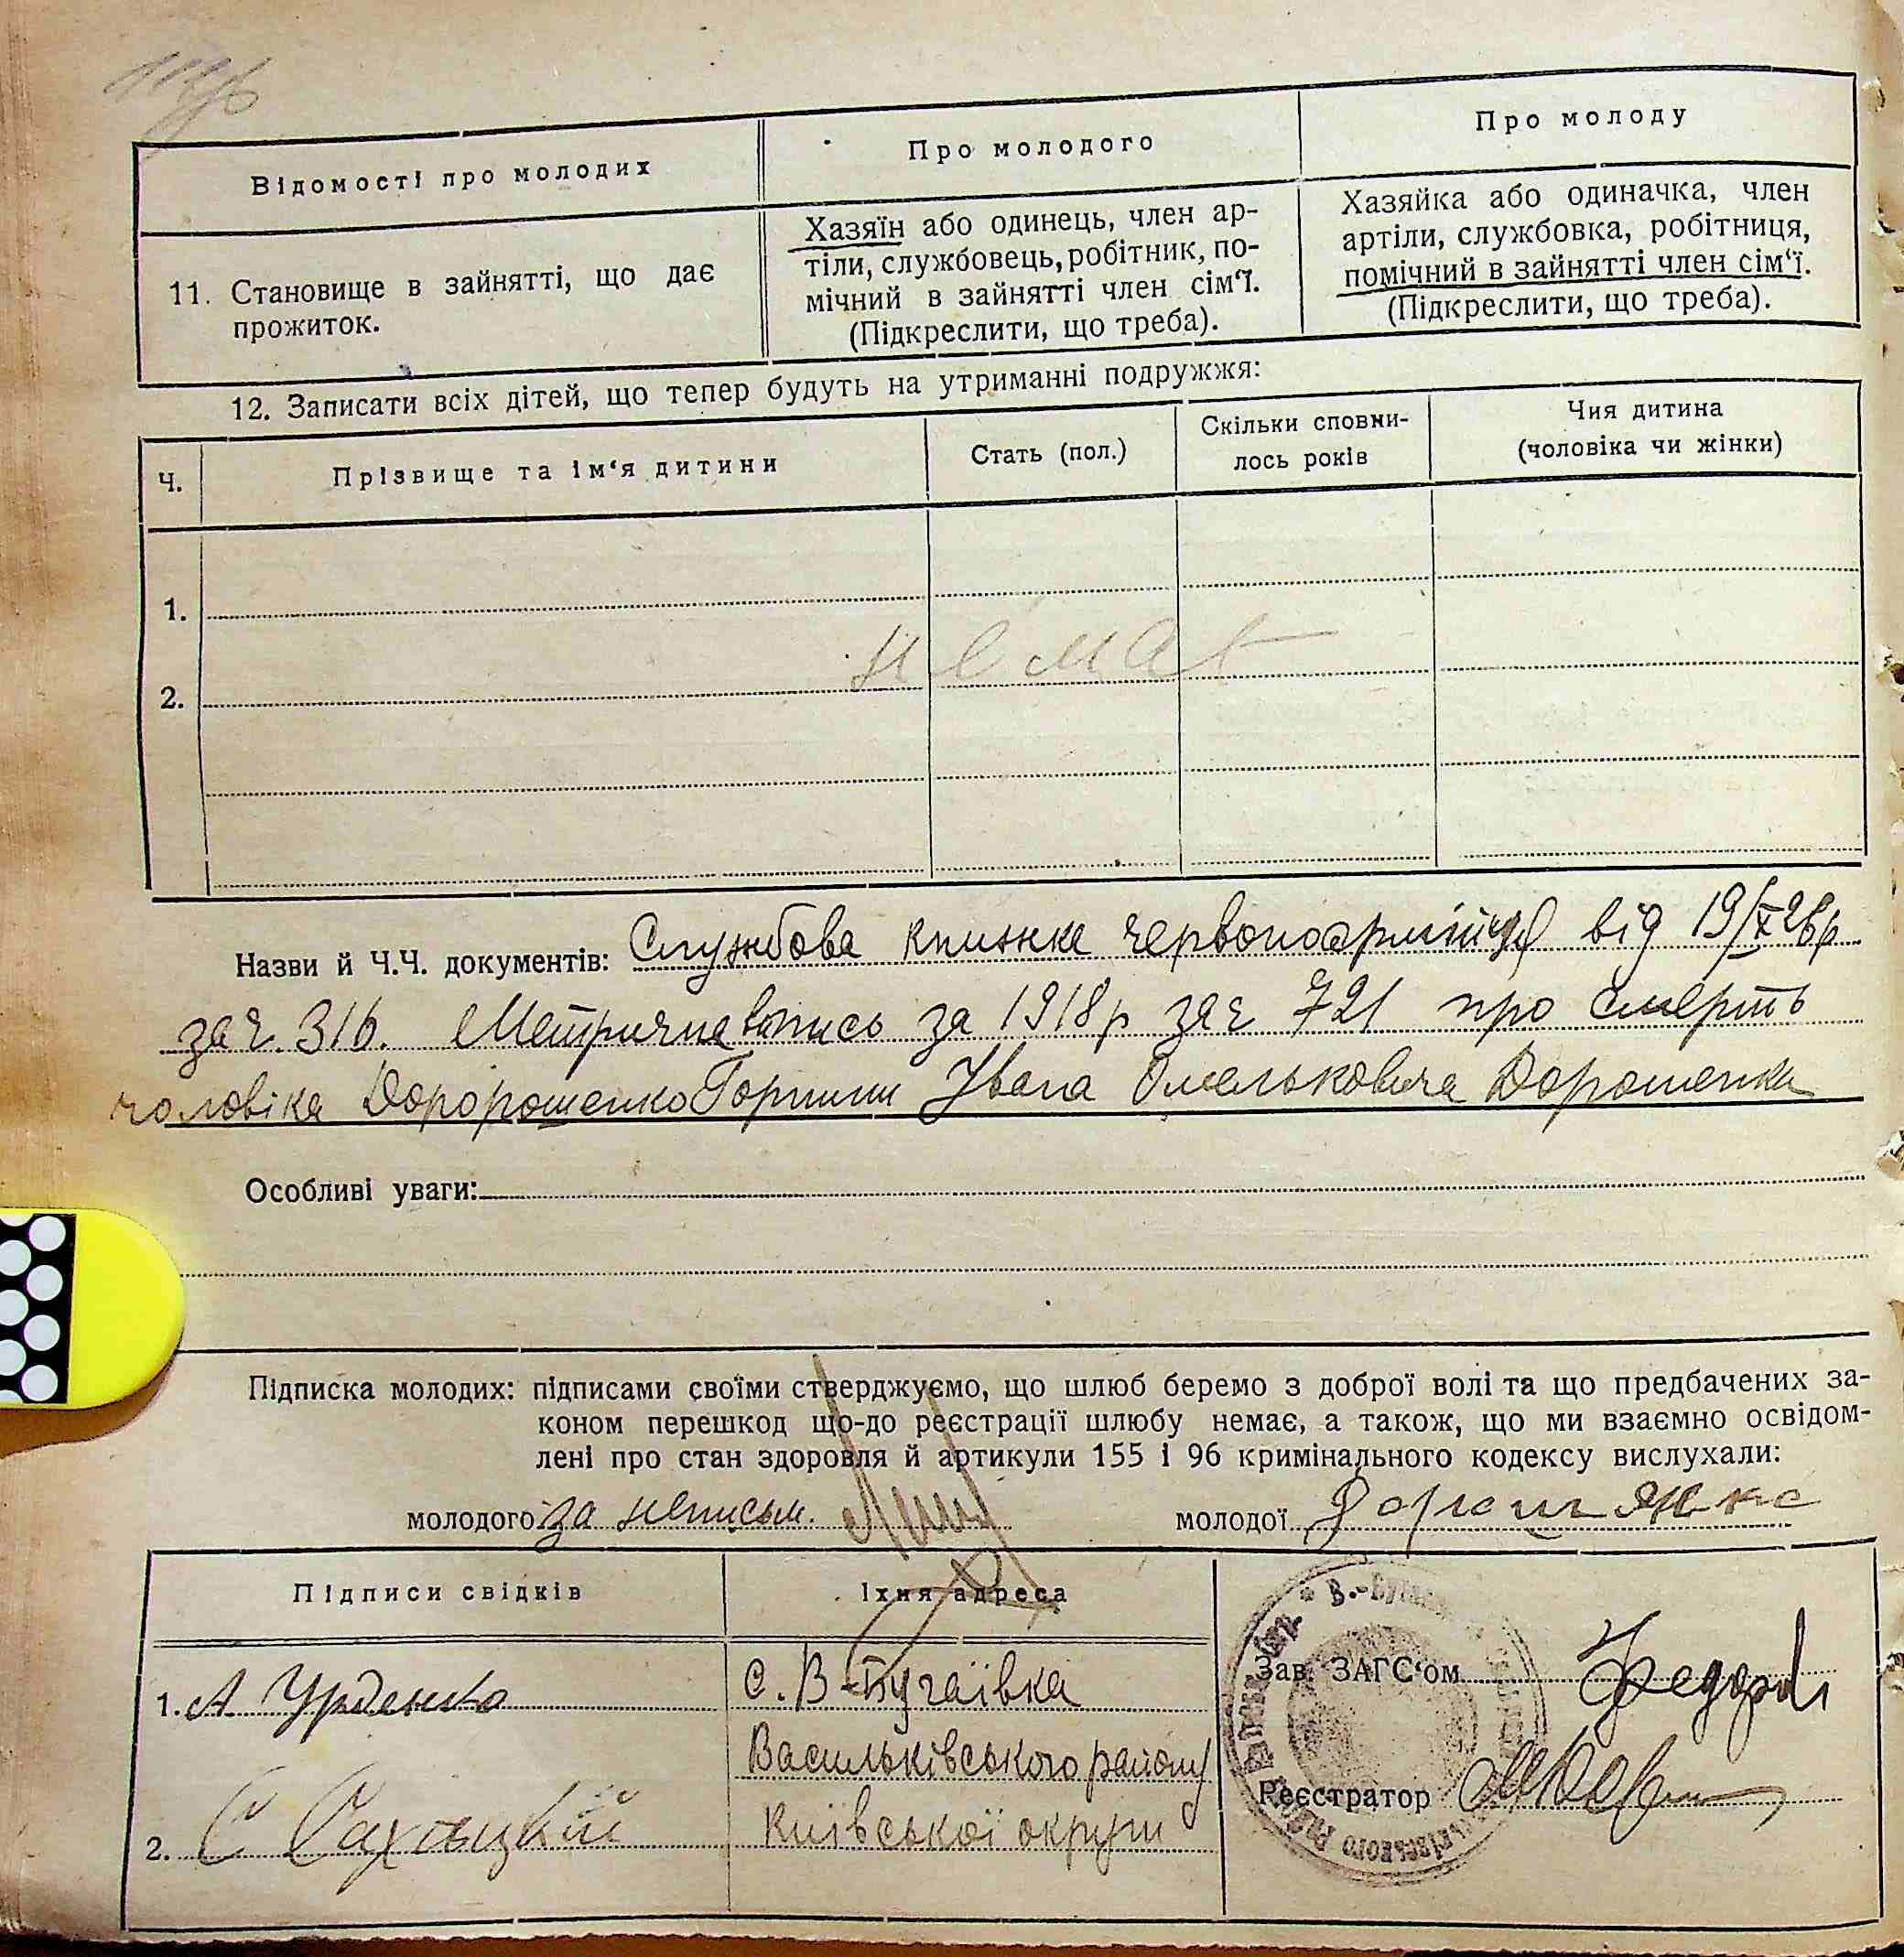 Відомості про молодих
Про молодого
Про молоду
11. Становище в зайнятті, що дає
прожиток.
Хазяїн або одинець, член ар-
тіли, службовець, робітник, по-
мічний в зайнятті член сім'ї.
(Підкреслити, що треба).
Хазяйка або одиначка, член
артіли, службовка, робітниця,
помічний в зайнятті член сім'ї.
(Підкреслити, що треба).
12. Записати всіх дітей, що тепер будуть на утриманні подружжя:
Ч.
Прізвище та ім'я дитини
Стать (пол.)
Скільки сповни-
лось років
Чия дитина
(чоловіка чи жінки)
1.
немає
2.
Назви й Ч.Ч. документів: Службова книжка червоноармійця від 19/X 26р
за ч. 316. Метрична за 1918р за ч 721 про смерть
чоловіка Доророшенко Горпини Івана Омельковича Дорошенка
Особливі уваги:
Підписка молодих: підписами своїми стверджуємо, що шлюб беремо з доброї волі та що предбачених за-
коном перешкод що-до реєстрації шлюбу немає, а також, що ми взаємно освідом-
лені про стан здоровля й артикули 155 і 96 кримінального кодексу вислухали:
молодого за неписьм.
молодої
Підписи свідків
Їхня адреса
1. А
С. В-Бугаївка
Васильківського району
Київської округи
2. С
Зав. ЗАГС'ом
Реєстратор